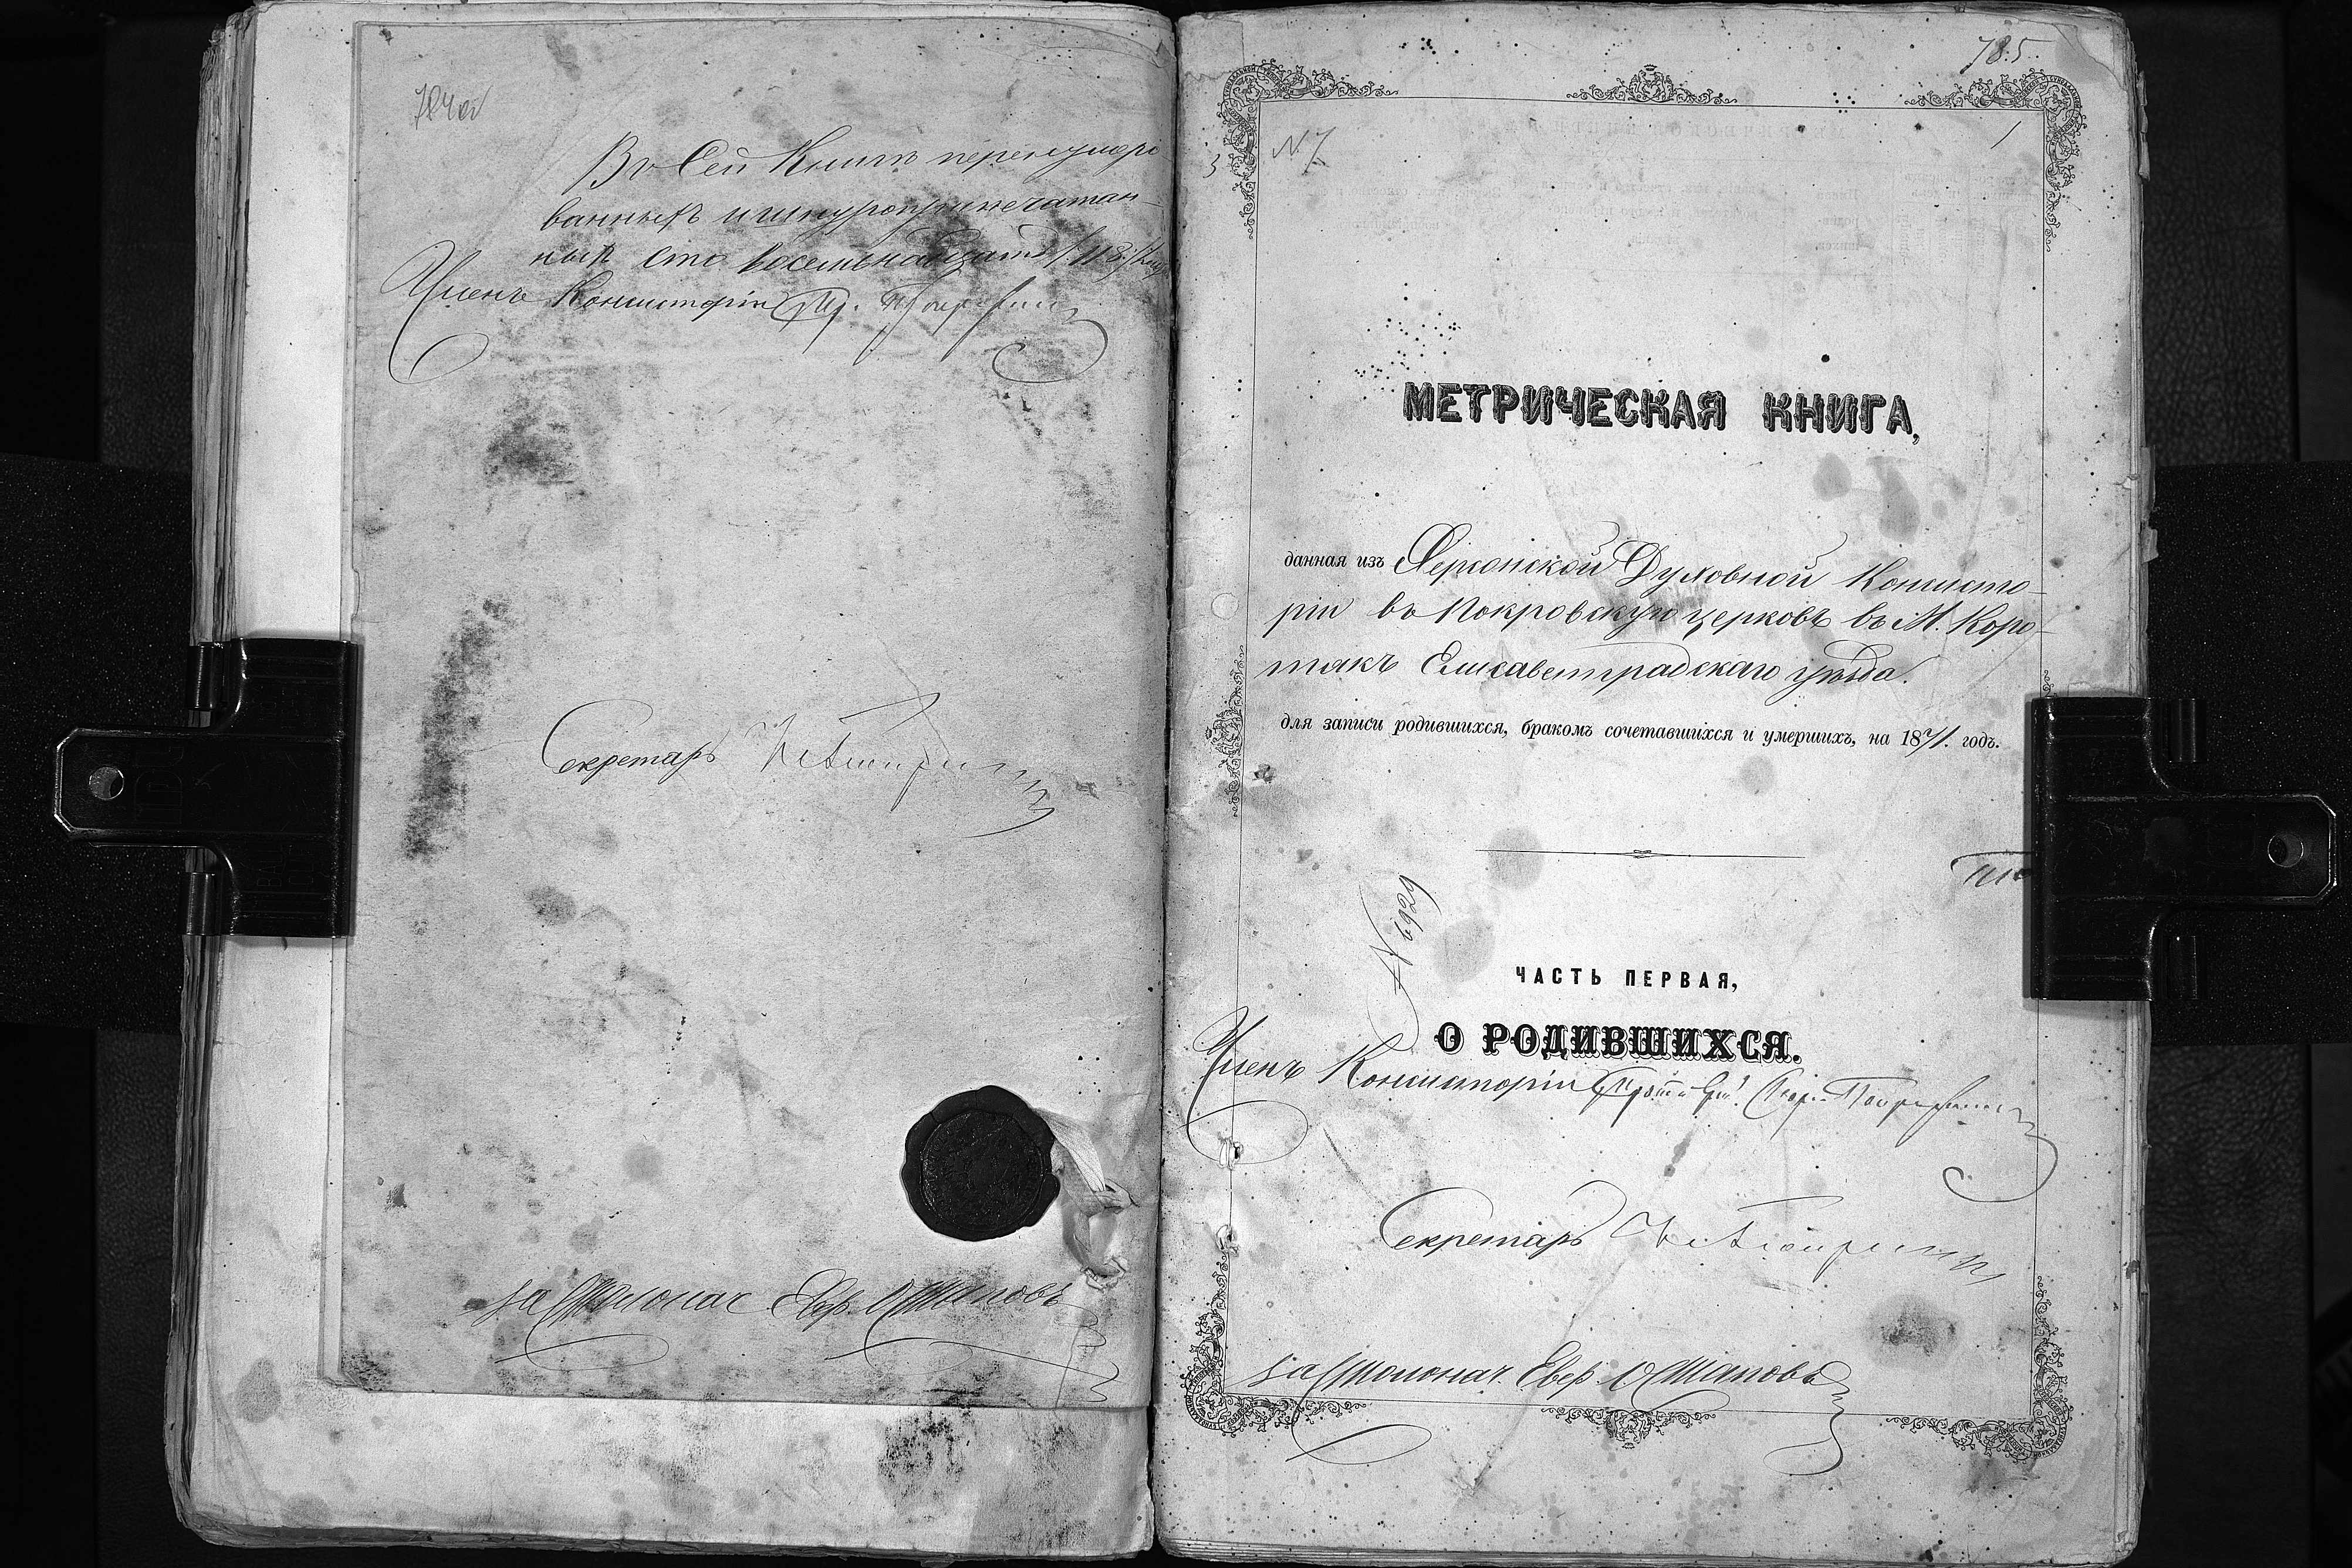 784об
Въ Сей Книгѣ перенумеро
ванныхъ и шнуроприпечатан-
ныхъ сто восемьнадцать /:118:/
Членъ Консисторіи Пр.
Секретарь
за Столонач. Евр. Остаповъ
785
1
3
N. 7
МЕТРИЧЕСКАЯ КНИГА,
данная изъ Херсонской Духовной Консисто-
ріи въ Покровскую церковь въ М. Коро-
такъ Елисаветградскаго уѣзда.
для записи родившихся, бракомъ сочетавшихся и умершихъ, на 1871. годъ.
N 6929
ЧАСТЬ ПЕРВАЯ,
О РОДИВШИХСЯ.
Членъ Консисторіи
Секретарь
за Столонач. Евр. Остаповъ